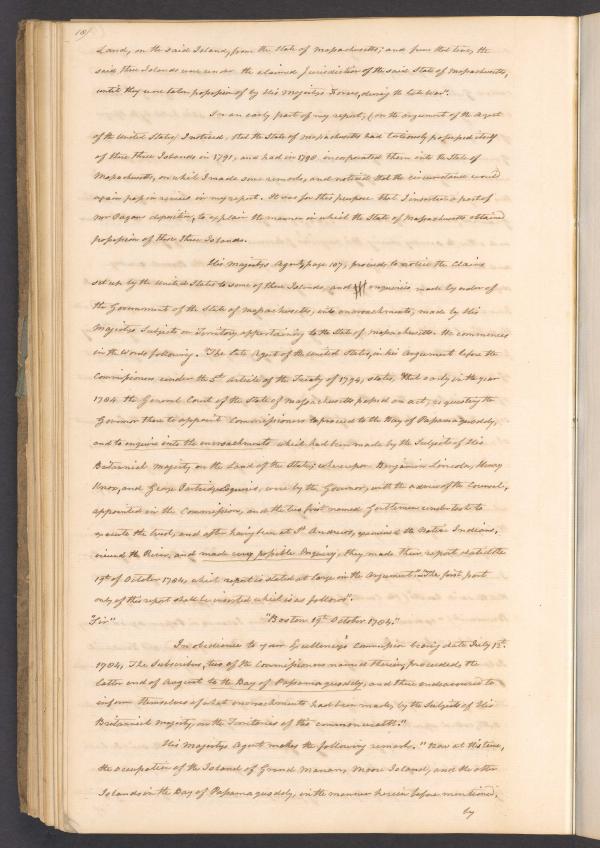 Land, on the said Island, from the State of Massachusetts; and from that time, the
said three Islands were under the claimed Jurisdiction of the said State of Massachusetts,
until they were taken possession of by His Majestys Forces, during the late War".
In an early part of my report, (on the argument of the Agent
of the United States) I noticed, that the State of Massachusetts had possessed itself
of these three Islands in 1791, and had in 1790 incorporated them into the State of
Massachusetts, on which I made some remarks, and noticed that the circumstance would
again pass in review in my report. It was for this purpose that I inserted a part of
Mr Pagans deposition, to explain the manner in which the State of Massachusetts obtained
possession of those three Islands.
His Majestys Agent, page 107, proceeds to notice the Claims
set up by the United States to some of these Islands, and enquiries made by order of
the Government of the State of Massachusetts, into encroachments, made by His
Majestys Subjects on Territory appertaining to the State of Massachusetts. He commences
in the words following. "The late Agent of the United States, in his Argument before the
Commissioners under the 5th article of the Treaty of 1794, states, "that early in the year
1784 the General Court of the State of Massachusetts passed an act, requesting the
Governor there to appoint Commissioners to proceed to the Bay of Passamaquoddy,
and to enquire into the encroachments which had been made by the Subjects of His
Britannick Majesty on the Land of the State; whereupon Benjamin Lincoln, Henry
Knox, and George Partridge Esquires, were by the Governor, with the advice of the Council,
appointed in the Commission, and the two first named Gentlemen undertook to
execute the trust, and after having been at St Andrews, examined the Native Indians,
viewed the River, and made every possible Enquiry, they made their report dated the
19th of October 1784, which report is stated at large in the Argument". "The first part
only of this report shall be inserted which is as follows".
"Sir" "Boston 19th October 1784."
In obedience to your Excellency's Commission bearing date July 12th
1784, The Subscribers, two of the Commissioners named therein, proceeded, the
latter end of August to the Bay of Passamaquoddy, and there endeavoured to
inform themselves of what encroachments had been made, by the Subjects of His
Britannick Majesty, on the Territories of this commonwealth."
His Majestys Agent makes the following remark. "Now at this time,
the occupation of the Island of Grand Manan, Moose Island, and the other
Islands in the Bay of Passamaquoddy, in the manner herein before mentioned,
by